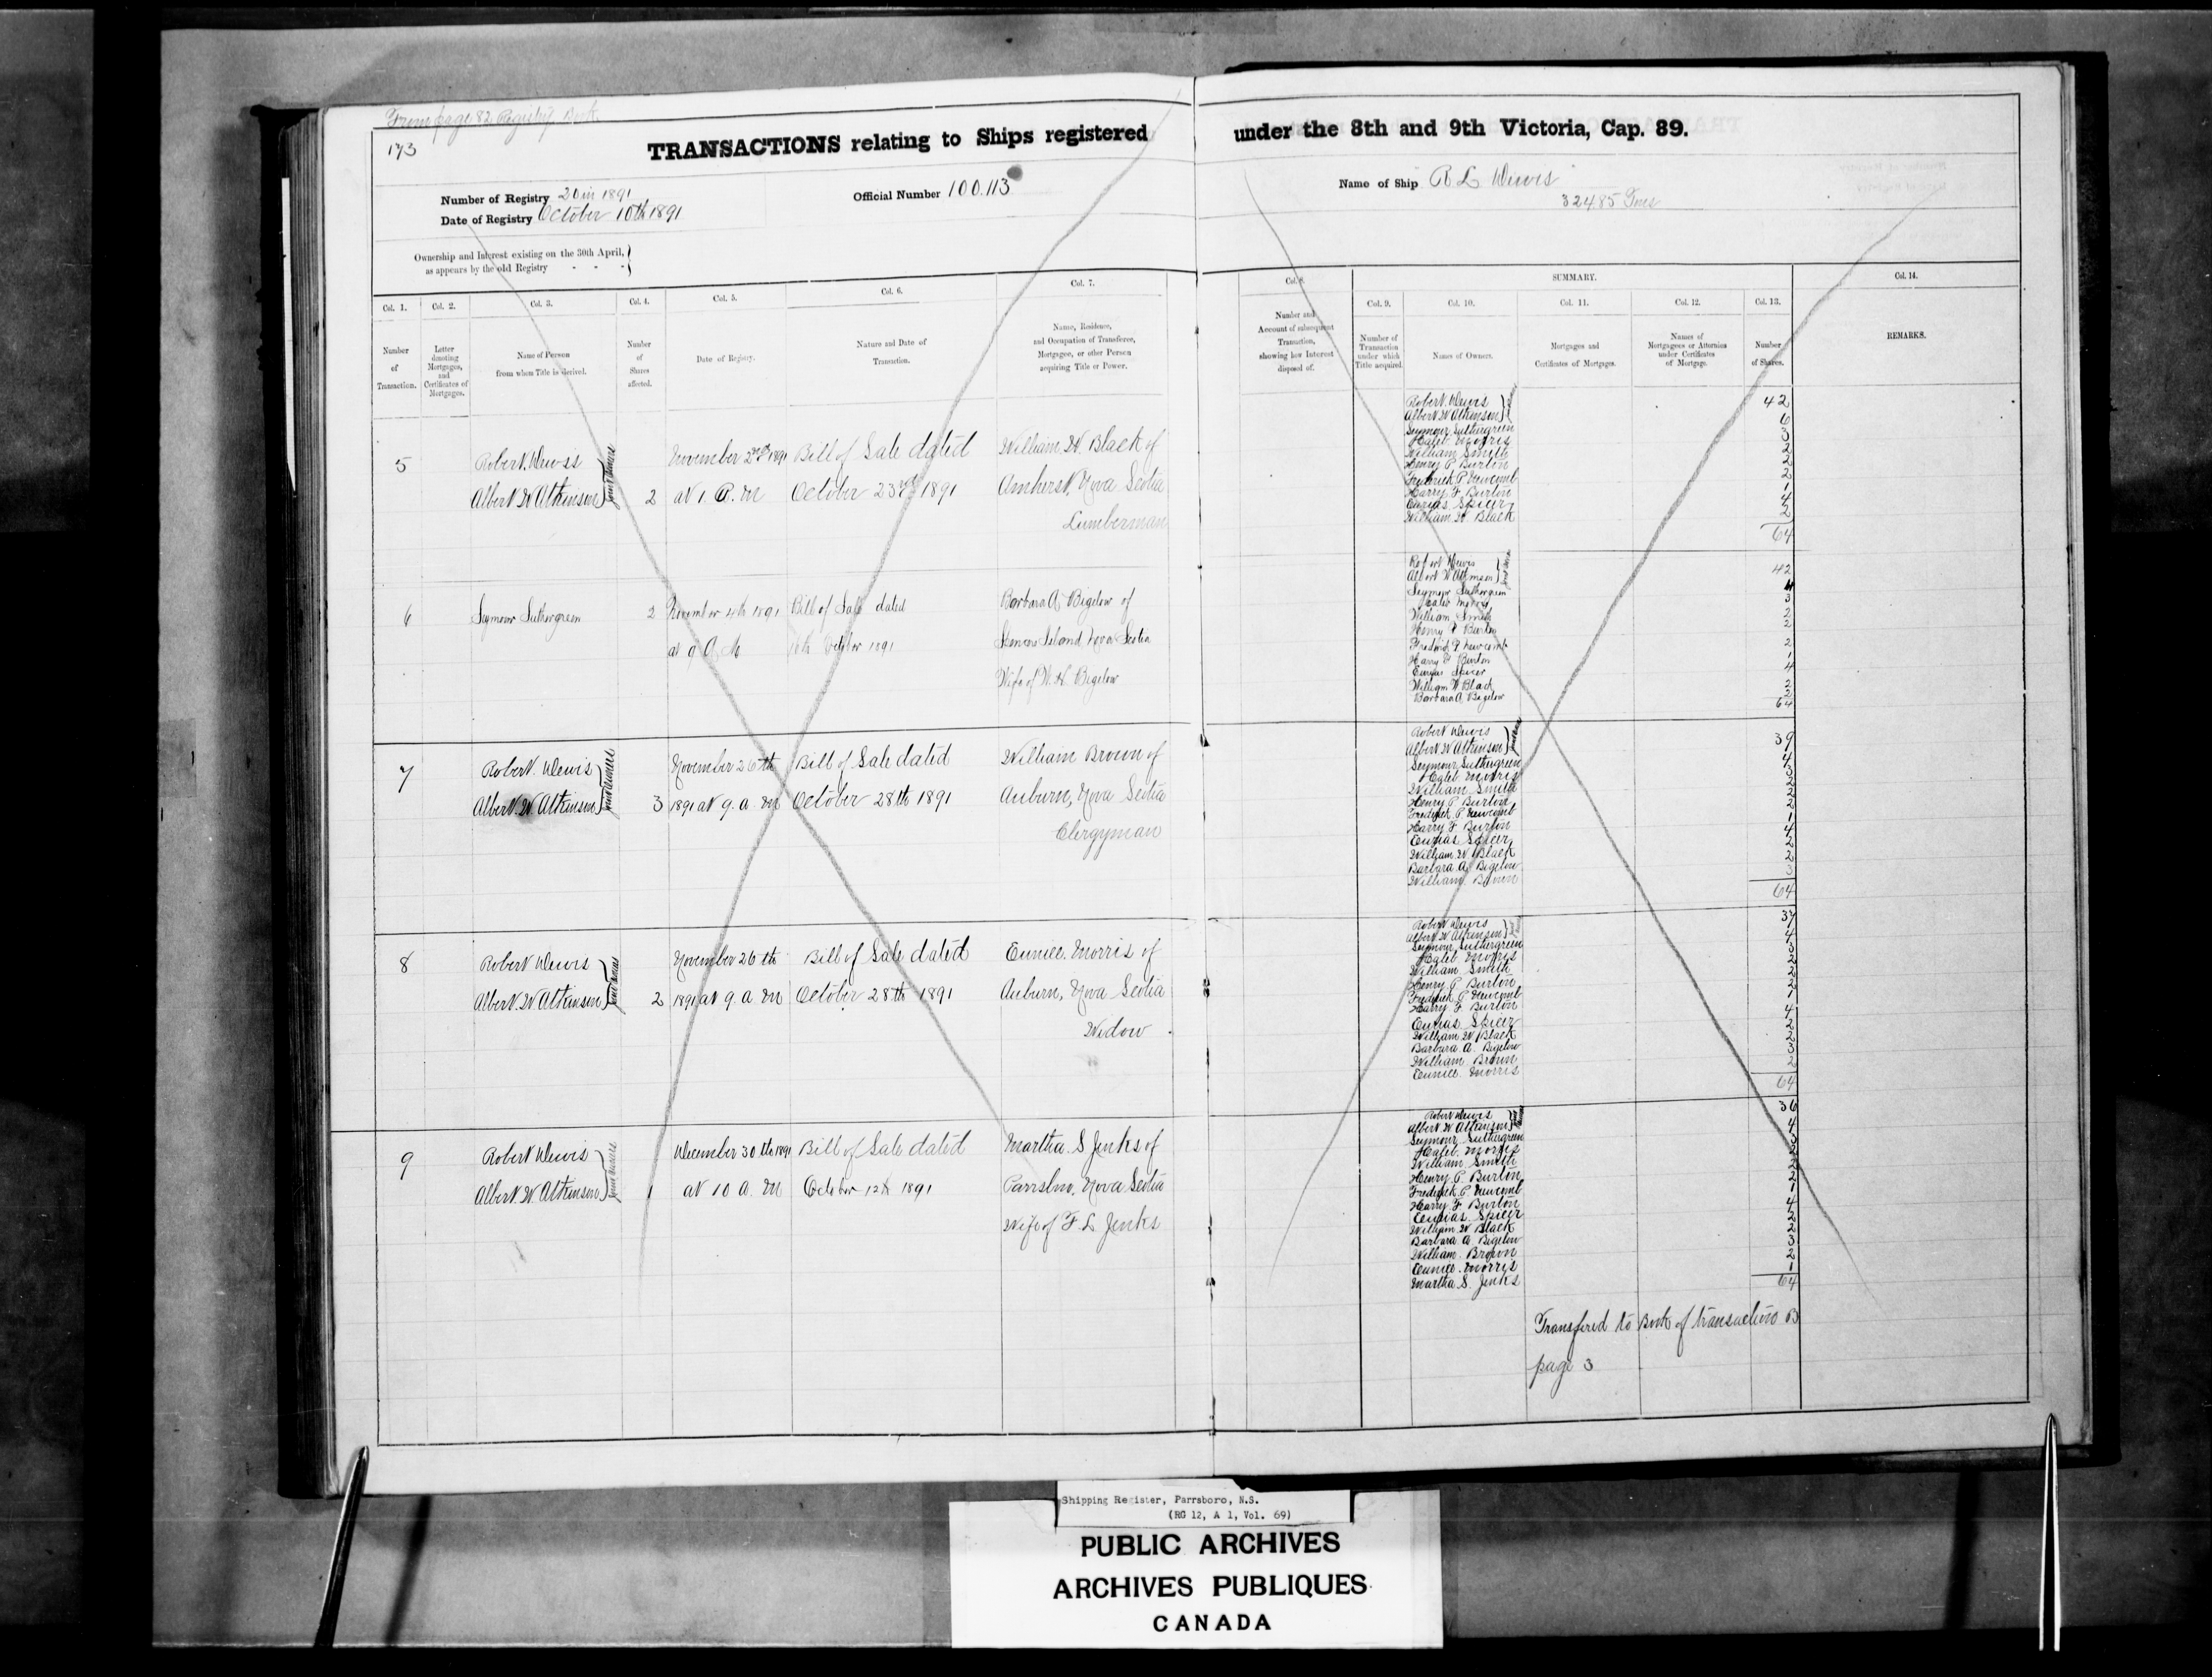 From page 82 Registry Book
173
TRANSACTIONS relating to Ships registered under the 8th and 9th Victoria, Cap. 89.
Number of Registry 20 in 1891
Date of Registry October 10th 1891
Official Number 100.113
Name of Ship R L Dewis
324.85 Tns
Ownership and Interest existing on the 30th April,
as appears by the old Registry - - -
SUMMARY.
Col. 1. Col. 2. Col. 3. Col. 4. Col. 5. Col. 6. Col. 7. Col. 8. Col. 9. Col. 10. Col. 11. Col. 12. Col. 13. Col. 14.
Number of Transaction.
Letter denoting Mortgages, and Certificates of Mortgages.
Name of Person from whom Title is derived.
Number of Shares affected.
Date of Registry.
Nature and Date of Transaction.
Name, Residence, and Occupation of Transferee, Mortgagee, or other Person acquiring Title or Power.
Number and Account of subsequent Transaction, showing how Interest disposed of.
Number of Transaction under which Title acquired.
Names of Owners.
Mortgages and Certificates of Mortgages.
Names of Mortgagees or Attornies under Certificates of Mortgage.
Number of Shares.
REMARKS.
5 Robert Dewis November 2nd 1891 Bill of Sale dated William W. Black of
Albert W Atkinson joint owners 2 at 1 P. M October 23rd 1891 Amherst, Nova Scotia
Lumberman
Robert Dewis
Albert W Atkinson 42
Seymour Suthergreen 6
Haleb Morris 3
William Smith 2
Henry P Burton 2
Frederick P Newcomb 2
Harry F Burton 1
Spicer 4
William W Black 2
64
6 Seymour Suthergreen 2 November 4th 1891 Bill of Sale dated Barbara A Bigelow of
at 9 A M 16th October 1891 Spencers Island Nova Scotia
Wife of W. H. Bigelow
Robert Dewis
Albert W Atkinson 42
Seymour Suthergreen 4
Haleb Morris 3
William Smith 2
Henry P Burton 2
Fredrick P Newcomb 2
Harry F Burton 1
Spicer 4
William W Black 2
Barbara A Bigelow 2
64
7 Robert Dewis November 26th Bill of Sale dated William Brown of
Albert W Atkinson joint owners 3 1891 at 9. a M October 28th 1891 Auburn, Nova Scotia
Clergyman
Robert Dewis
Albert W Atkinson 39
Seymour Suthergreen 4
Haleb Morris 3
William Smith 2
Henry P Burton 2
Frederick P Newcomb 2
Harry F Burton 1
Spicer 4
William W Black 2
Barbara A Bigelow 2
William Brown 3
64
8 Robert Dewis November 26th Bill of Sale dated Eunice Morris of
Albert W Atkinson joint owners 2 1891 at 9. a M October 28th 1891 Auburn, Nova Scotia
Widow
Robert Dewis
Albert W Atkinson 37
Seymour Suthergreen 4
Haleb Morris 3
William Smith 2
Henry P Burton 2
Frederick P Newcomb 2
Harry F Burton 1
Spicer 4
William W Black 2
Barbara A. Bigelow 2
William Brown 3
Eunice Morris 2
64
9 Robert Dewis December 30th 1891 Bill of Sale dated Martha S Jenks of
Albert W Atkinson joint owners 1 at 10 A. M October 12th 1891 Parrsboro, Nova Scotia
Wife of F L Jenks
Robert Dewis
Albert W Atkinson 36
Seymour Suthergreen 4
Haleb Morris 3
William Smith 2
Henry P Burton 2
Frederick P Newcomb 2
Harry F Burton 1
Spicer 4
William W Black 2
Barbara A Bigelow 2
William Brown 3
Eunice Morris 2
Martha S. Jenks 1
64
Transfered to Book of transactions B
page 3
Shipping Register, Parrsboro, N.S.
(RG 12, A 1, Vol. 69)
PUBLIC ARCHIVES
ARCHIVES PUBLIQUES
CANADA